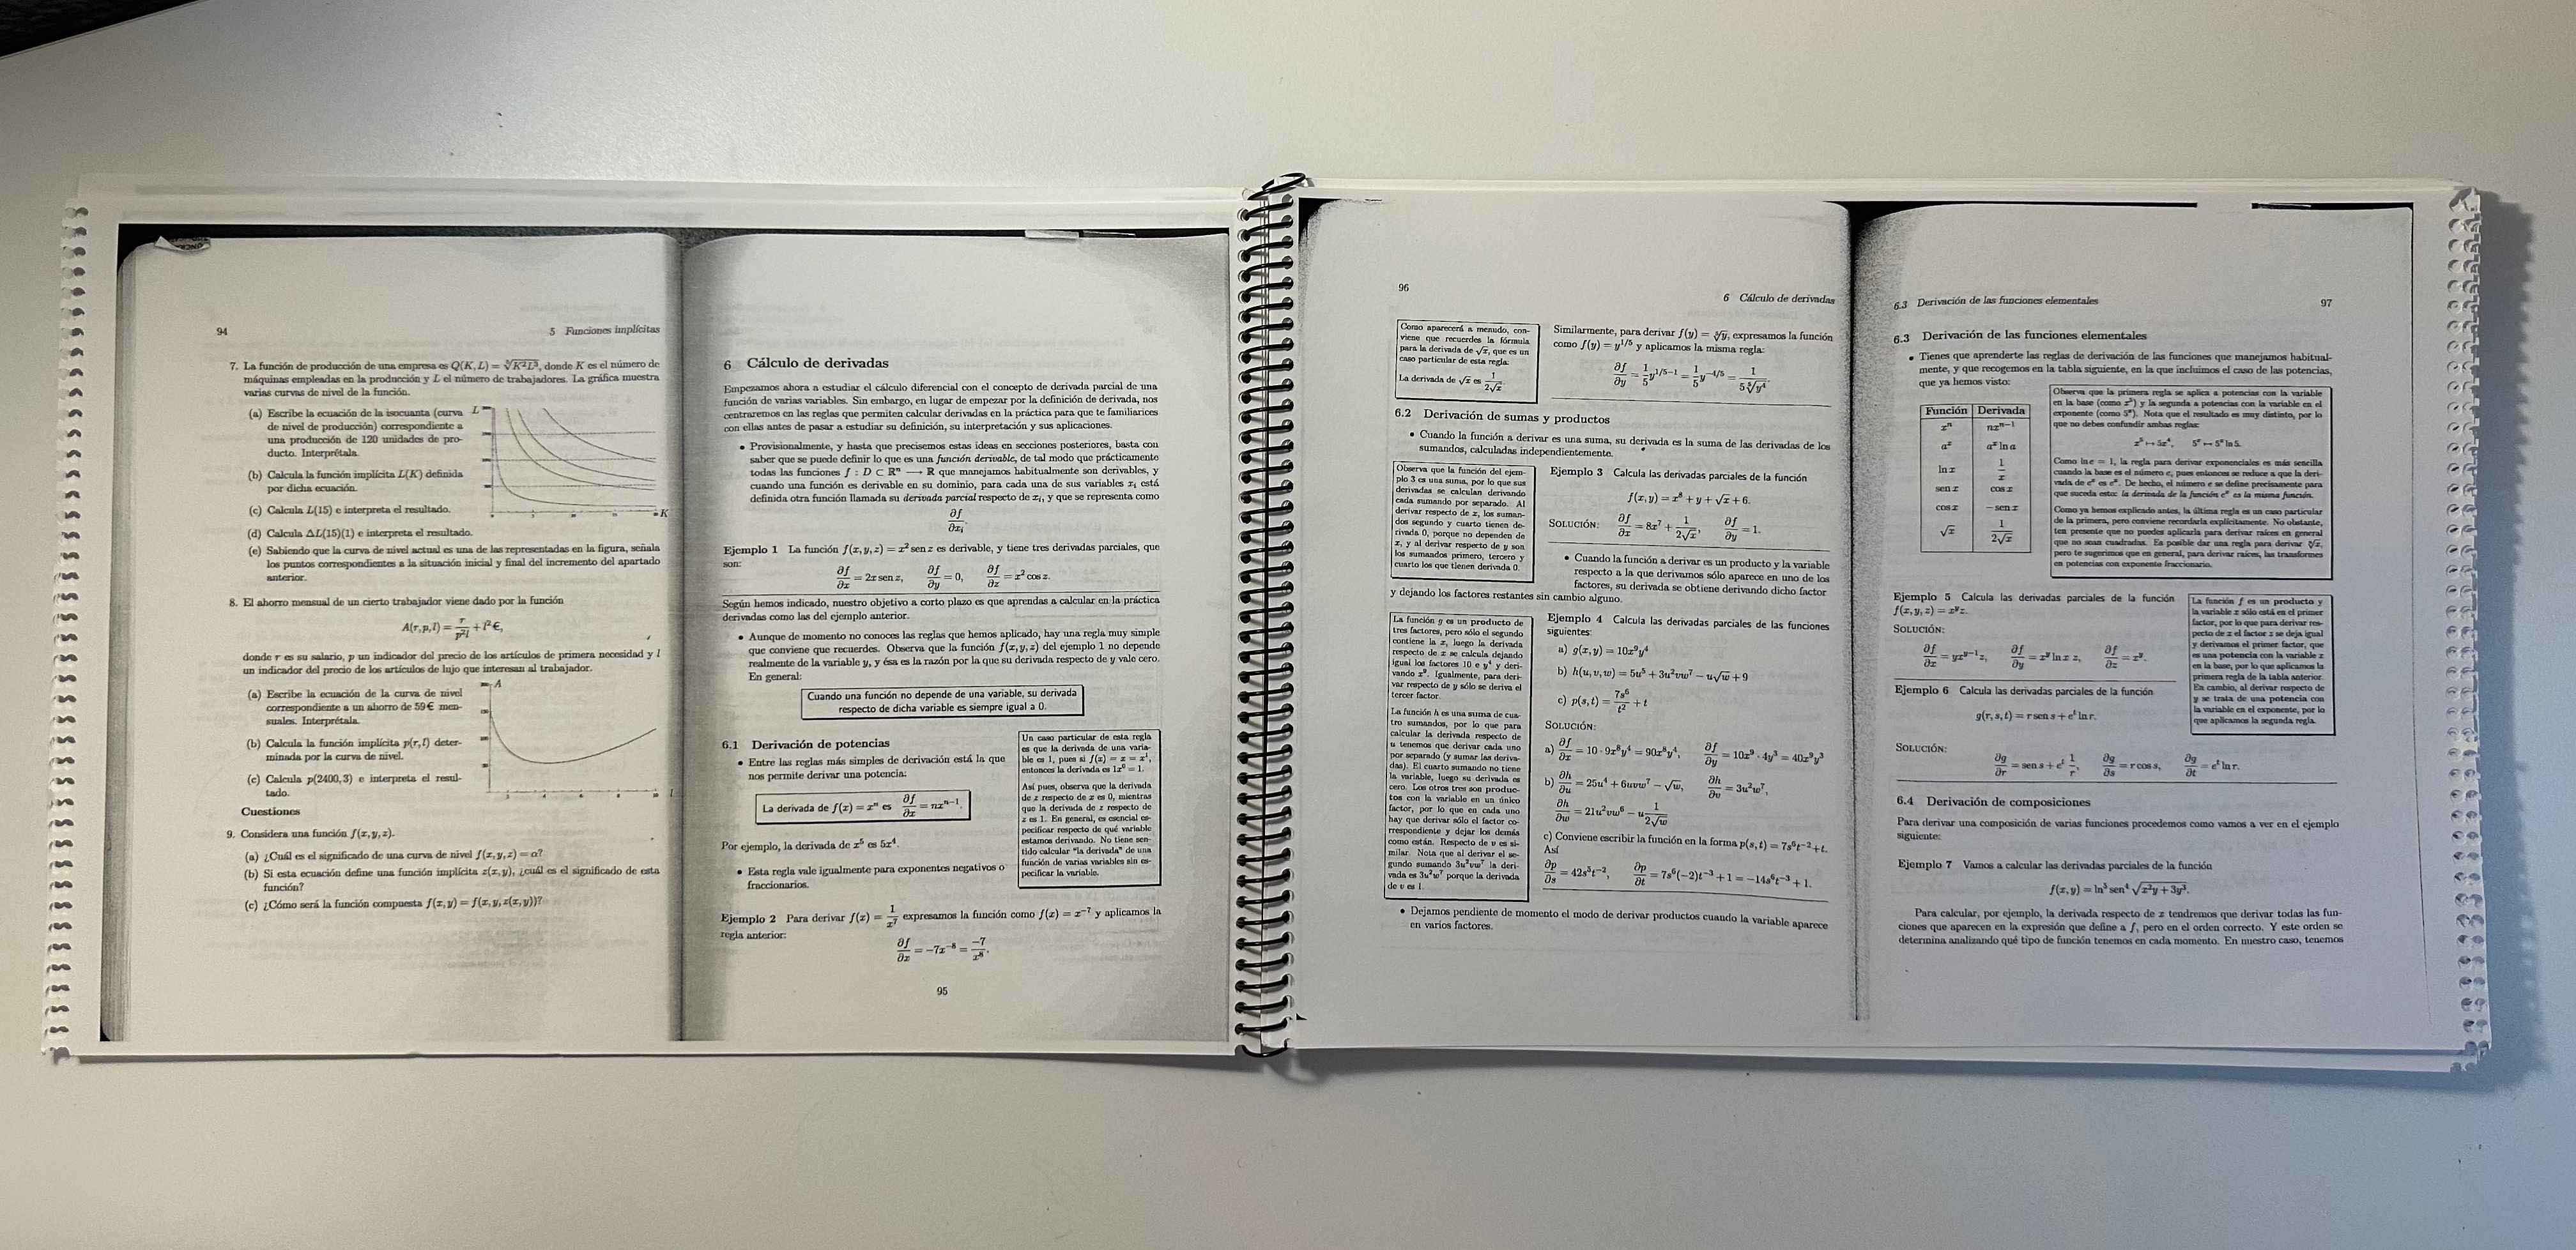 94
5 Funciones implícitas
7. La función de producción de una empresa es Q(K, L) = ⁵√K²L³, donde K es el número de
máquinas empleadas en la producción y L el número de trabajadores. La gráfica muestra
varias curvas de nivel de la función.
(a) Escribe la ecuación de la isocuanta (curva
de nivel de producción) correspondiente a
una producción de 120 unidades de pro-
ducto. Interprétala.
(b) Calcula la función implícita L(K) definida
por dicha ecuación.
(c) Calcula L(15) e interpreta el resultado.
L
K
(d) Calcula ΔL(15)(1) e interpreta el resultado.
(e) Sabiendo que la curva de nivel actual es una de las representadas en la figura, señala
los puntos correspondientes a la situación inicial y final del incremento del apartado
anterior.
8. El ahorro mensual de un cierto trabajador viene dado por la función
A(r, p, l) = r/p²l + l² €,
donde r es su salario, p un indicador del precio de los artículos de primera necesidad y l
un indicador del precio de los artículos de lujo que interesan al trabajador.
(a) Escribe la ecuación de la curva de nivel
correspondiente a un ahorro de 59 € men-
suales. Interprétala.
(b) Calcula la función implícita p(r, l) deter-
minada por la curva de nivel.
(c) Calcula p(2400, 3) e interpreta el resul-
tado.
A
l
Cuestiones
9. Considera una función f(x, y, z).
(a) ¿Cuál es el significado de una curva de nivel f(x, y, z) = α?
(b) Si esta ecuación define una función implícita z(x, y), ¿cuál es el significado de esta
función?
(c) ¿Cómo será la función compuesta f(x, y) = f(x, y, z(x, y))?
6 Cálculo de derivadas
Empezamos ahora a estudiar el cálculo diferencial con el concepto de derivada parcial de una
función de varias variables. Sin embargo, en lugar de empezar por la definición de derivada, nos
centraremos en las reglas que permiten calcular derivadas en la práctica para que te familiarices
con ellas antes de pasar a estudiar su definición, su interpretación y sus aplicaciones.
• Provisionalmente, y hasta que precisemos estas ideas en secciones posteriores, basta con
saber que se puede definir lo que es una función derivable, de tal modo que prácticamente
todas las funciones f : D ⊂ ℝⁿ ⟶ ℝ que manejamos habitualmente son derivables, y
cuando una función es derivable en su dominio, para cada una de sus variables xᵢ está
definida otra función llamada su derivada parcial respecto de xᵢ, y que se representa como
∂f/∂xᵢ.
Ejemplo 1 La función f(x, y, z) = x² sen z es derivable, y tiene tres derivadas parciales, que
son:
∂f/∂x = 2x sen z, ∂f/∂y = 0, ∂f/∂z = x² cos z.
Según hemos indicado, nuestro objetivo a corto plazo es que aprendas a calcular en la práctica
derivadas como las del ejemplo anterior.
• Aunque de momento no conoces las reglas que hemos aplicado, hay una regla muy simple
que conviene que recuerdes. Observa que la función f(x, y, z) del ejemplo 1 no depende
realmente de la variable y, y ésa es la razón por la que su derivada respecto de y vale cero.
En general:
Cuando una función no depende de una variable, su derivada
respecto de dicha variable es siempre igual a 0.
6.1 Derivación de potencias
• Entre las reglas más simples de derivación está la que
nos permite derivar una potencia:
La derivada de f(x) = xⁿ es ∂f/∂x = nxⁿ⁻¹.
Por ejemplo, la derivada de x⁵ es 5x⁴.
• Esta regla vale igualmente para exponentes negativos o
fraccionarios.
Un caso particular de esta regla
es que la derivada de una varia-
ble es 1, pues si f(x) = x = x¹,
entonces la derivada es 1x⁰ = 1.
Así pues, observa que la derivada
de z respecto de x es 0, mientras
que la derivada de z respecto de
z es 1. En general, es esencial es-
pecificar respecto de qué variable
estamos derivando. No tiene sen-
tido calcular "la derivada" de una
función de varias variables sin es-
pecificar la variable.
Ejemplo 2 Para derivar f(x) = 1/x⁷ expresamos la función como f(x) = x⁻⁷ y aplicamos la
regla anterior:
∂f/∂x = −7x⁻⁸ = −7/x⁸.
95
96
6 Cálculo de derivadas
Como aparecerá a menudo, con-
viene que recuerdes la fórmula
para la derivada de √x, que es un
caso particular de esta regla:
La derivada de √x es 1/2√x.
Similarmente, para derivar f(y) = ⁵√y, expresamos la función
como f(y) = y¹/⁵ y aplicamos la misma regla:
∂f/∂y = 1/5 y¹/⁵⁻¹ = 1/5 y⁻⁴/⁵ = 1/5⁵√y⁴.
6.2 Derivación de sumas y productos
• Cuando la función a derivar es una suma, su derivada es la suma de las derivadas de los
sumandos, calculadas independientemente.
Observa que la función del ejem-
plo 3 es una suma, por lo que sus
derivadas se calculan derivando
cada sumando por separado. Al
derivar respecto de x, los suman-
dos segundo y cuarto tienen de-
rivada 0, porque no dependen de
x, y al derivar respecto de y son
los sumandos primero, tercero y
cuarto los que tienen derivada 0.
Ejemplo 3 Calcula las derivadas parciales de la función
f(x, y) = x⁸ + y + √x + 6.
SOLUCIÓN: ∂f/∂x = 8x⁷ + 1/2√x, ∂f/∂y = 1.
• Cuando la función a derivar es un producto y la variable
respecto a la que derivamos sólo aparece en uno de los
factores, su derivada se obtiene derivando dicho factor
y dejando los factores restantes sin cambio alguno.
La función g es un producto de
tres factores, pero sólo el segundo
contiene la x, luego la derivada
respecto de x se calcula dejando
igual los factores 10 e y⁴ y deri-
vando x⁹. Igualmente, para deri-
var respecto de y sólo se deriva el
tercer factor.
La función h es una suma de cua-
tro sumandos, por lo que para
calcular la derivada respecto de
u tenemos que derivar cada uno
por separado (y sumar las deriva-
das). El cuarto sumando no tiene
la variable, luego su derivada es
cero. Los otros tres son produc-
tos con la variable en un único
factor, por lo que en cada uno
hay que derivar sólo el factor co-
rrespondiente y dejar los demás
como están. Respecto de v es si-
milar. Nota que al derivar el se-
gundo sumando 3u²vw⁷ la deri-
vada es 3u²w⁷ porque la derivada
de v es 1.
Ejemplo 4 Calcula las derivadas parciales de las funciones
siguientes:
a) g(x, y) = 10x⁹y⁴
b) h(u, v, w) = 5u⁵ + 3u²vw⁷ − u√w + 9
c) p(s, t) = 7s⁶/t² + t
SOLUCIÓN:
a) ∂f/∂x = 10 · 9x⁸y⁴ = 90x⁸y⁴, ∂f/∂y = 10x⁹ · 4y³ = 40x⁹y³
b) ∂h/∂u = 25u⁴ + 6uvw⁷ − √w, ∂h/∂v = 3u²w⁷,
∂h/∂w = 21u²vw⁶ − u 1/2√w
c) Conviene escribir la función en la forma p(s, t) = 7s⁶t⁻² + t.
Así
∂p/∂s = 42s⁵t⁻², ∂p/∂t = 7s⁶(−2)t⁻³ + 1 = −14s⁶t⁻³ + 1.
• Dejamos pendiente de momento el modo de derivar productos cuando la variable aparece
en varios factores.
6.3 Derivación de las funciones elementales
97
6.3 Derivación de las funciones elementales
• Tienes que aprenderte las reglas de derivación de las funciones que manejamos habitual-
mente, y que recogemos en la tabla siguiente, en la que incluimos el caso de las potencias,
que ya hemos visto:
Función Derivada
xⁿ nxⁿ⁻¹
aˣ aˣ ln a
ln x 1/x
sen x cos x
cos x − sen x
√x 1/2√x
Observa que la primera regla se aplica a potencias con la variable
en la base (como x⁵) y la segunda a potencias con la variable en el
exponente (como 5ˣ). Nota que el resultado es muy distinto, por lo
que no debes confundir ambas reglas:
x⁵ ↦ 5x⁴, 5ˣ ↦ 5ˣ ln 5.
Como ln e = 1, la regla para derivar exponenciales es más sencilla
cuando la base es el número e, pues entonces se reduce a que la deri-
vada de eˣ es eˣ. De hecho, el número e se define precisamente para
que suceda esto: la derivada de la función eˣ es la misma función.
Como ya hemos explicado antes, la última regla es un caso particular
de la primera, pero conviene recordarla explícitamente. No obstante,
ten presente que no puedes aplicarla para derivar raíces en general
que no sean cuadradas. Es posible dar una regla para derivar ⁿ√x,
pero te sugerimos que en general, para derivar raíces, las transformes
en potencias con exponente fraccionario.
Ejemplo 5 Calcula las derivadas parciales de la función
f(x, y, z) = xʸz.
SOLUCIÓN:
∂f/∂x = yxʸ⁻¹z, ∂f/∂y = xʸ ln x z, ∂f/∂z = xʸ.
La función f es un producto y
la variable x sólo está en el primer
factor, por lo que para derivar res-
pecto de x el factor z se deja igual
y derivamos el primer factor, que
es una potencia con la variable x
en la base, por lo que aplicamos la
primera regla de la tabla anterior.
En cambio, al derivar respecto de
y se trata de una potencia con
la variable en el exponente, por lo
que aplicamos la segunda regla.
Ejemplo 6 Calcula las derivadas parciales de la función
g(r, s, t) = r sen s + eᵗ ln r.
SOLUCIÓN:
∂g/∂r = sen s + eᵗ 1/r, ∂g/∂s = r cos s, ∂g/∂t = eᵗ ln r.
6.4 Derivación de composiciones
Para derivar una composición de varias funciones procedemos como vamos a ver en el ejemplo
siguiente:
Ejemplo 7 Vamos a calcular las derivadas parciales de la función
f(x, y) = ln⁵ sen⁴ √x²y + 3y³.
Para calcular, por ejemplo, la derivada respecto de x tendremos que derivar todas las fun-
ciones que aparecen en la expresión que define a f, pero en el orden correcto. Y este orden se
determina analizando qué tipo de función tenemos en cada momento. En nuestro caso, tenemos